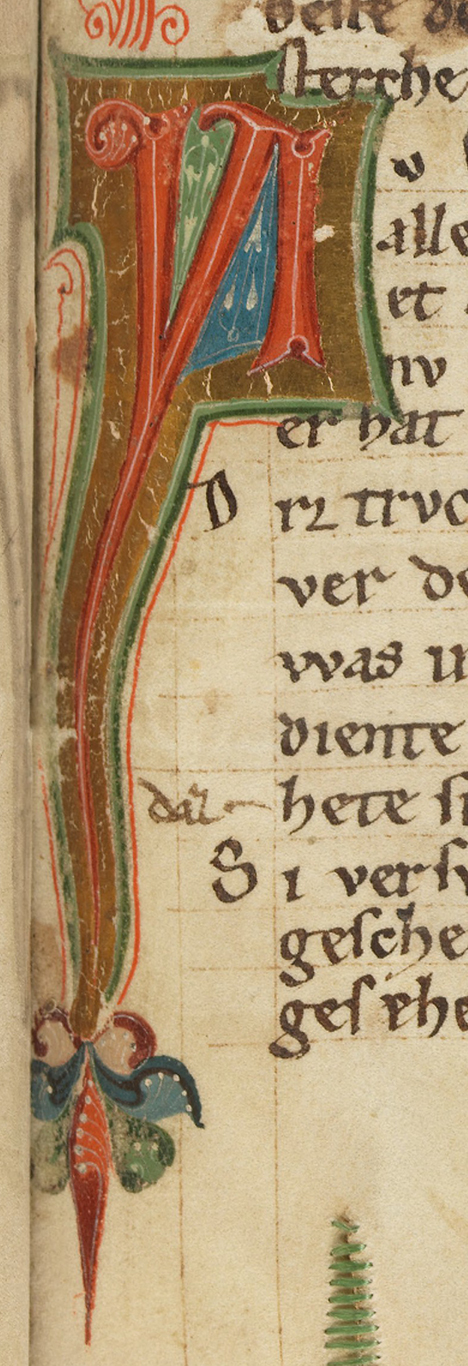 beiſte de
ſterche
N
v
alle
et
nv
er hat
D rꝛ trvo
ver de
was u
diente
daz hete ſi
S i verſv
geſche
geſ ehe